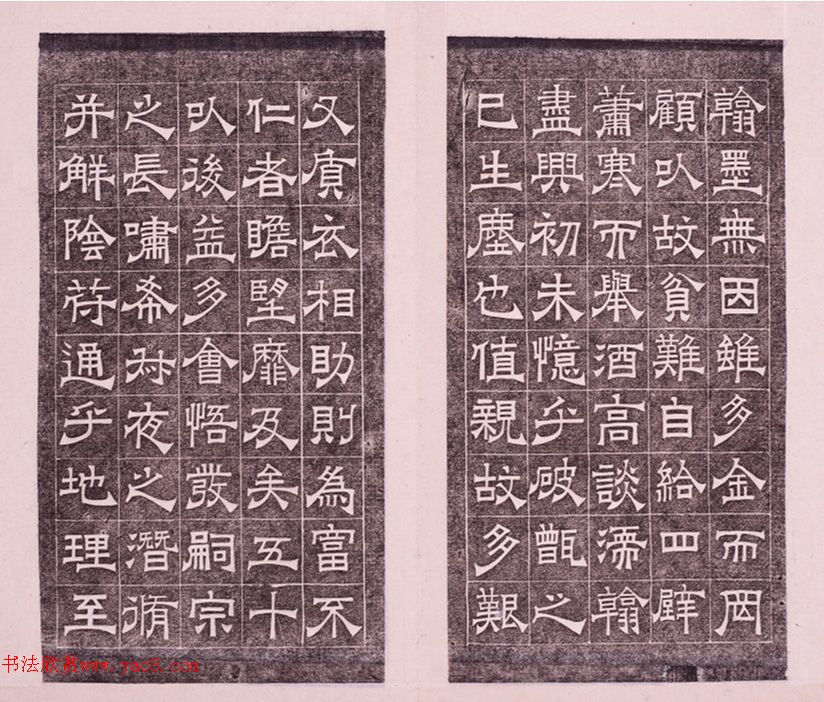 翰墨無因雖多金而罔
顧㕥故貧難自給四壁
蕭寒而舉酒高談濡翰
盡興初未憶乎破甑之
已生塵也值親故多艱
又貭衣相助則為富不
仁者瞻望靡及矣五十
㕥後益多會悟發嗣宗
之長嘯希叔夜之潛脩
并解陰符通乎地理至
书法欣赏www.yac8.com